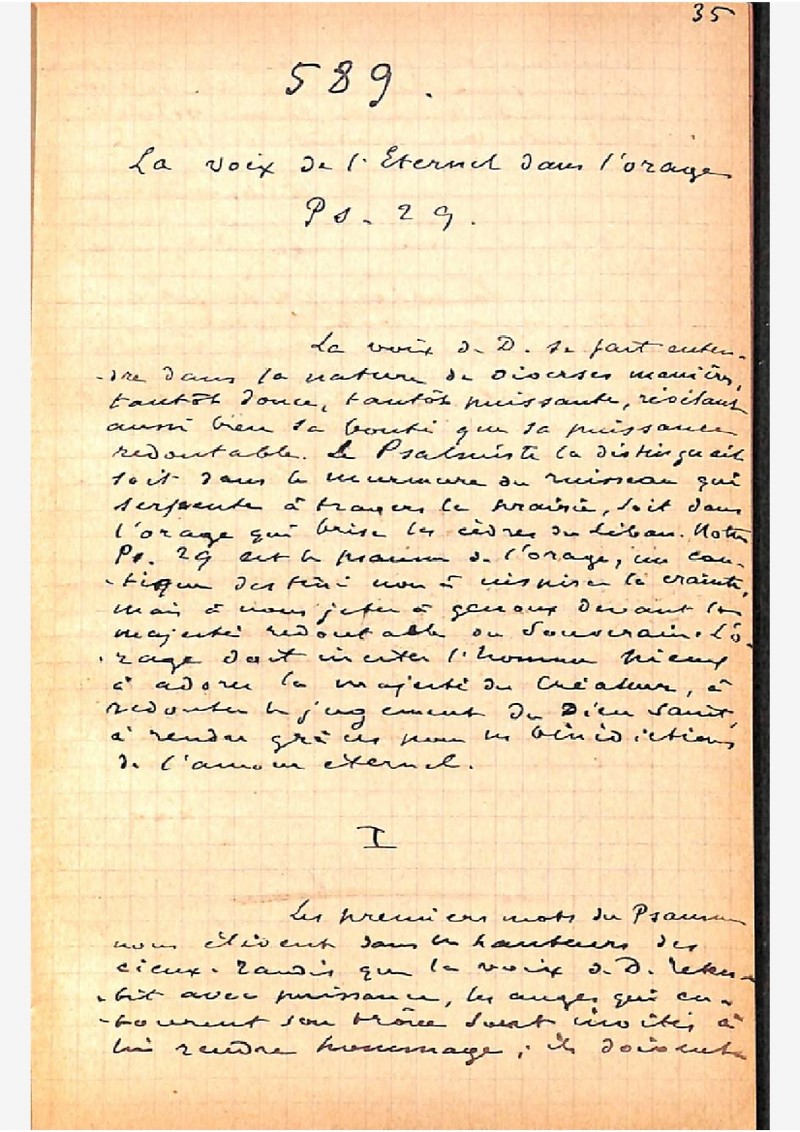 35
589.
La voix de l'Eternel dans l'orage
Ps. 29.
La voix de D. se fait enten-
-dre dans la nature de diverses manières,
tantôt douce, tantôt puissante, révélant
aussi bien sa bonté que sa puissance
redoutable. Le Psalmiste la distinguait
soit dans le murmure du ruisseau qui
serpente à travers la prairie, soit dans
l'orage qui brise les cèdres du Liban. Notre
Ps. 29 est le psaume de l'orage, un can-
-tique destiné non à inspirer la crainte,
mais à nous jeter à genoux devant la
majesté redoutable du Souverain. L'o-
-rage doit inciter l'homme pieux
à adorer la majesté du Créateur, à
redouter le jugement du Dieu Saint,
à rendre grâces pour les bénédictions
de l'amour éternel.
I
Les premiers mots du Psaume
nous élèvent dans les hauteurs des
cieux. Tandis que la voix de D. reten-
-tit avec puissance, les anges qui en-
-tourent son trône sont invités à
lui rendre hommage; ils doivent